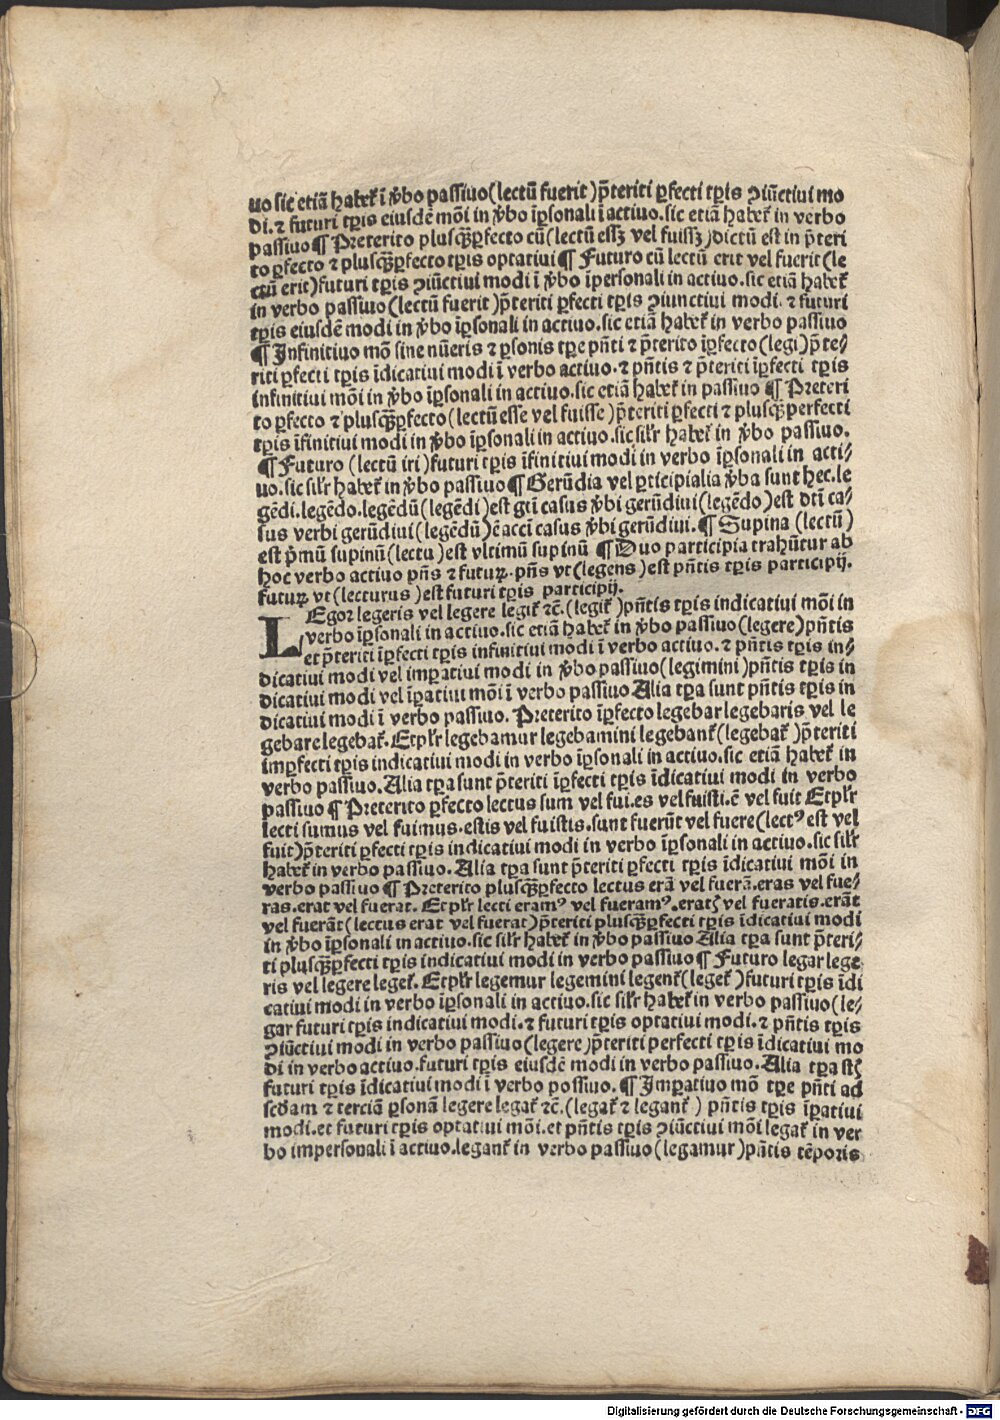 uo sic etiā habet͛ ī v̓bo passiuo(lectū fuerit)p̄teriti ꝑfecti tꝑis ꝯiūctiui mo
di.⁊ futuri tꝑis eiusdē mōi in v̓bo īꝑsonali ī actiuo.sic etiā habet͛ in verbo
passiuo¶Preterito plusq̄ꝑfecto cū(lectū essꝫ vel fuissꝫ)dictū est in p̄teri
to ꝑfecto ⁊ plusq̄ꝑfecto tꝑis optatiui¶Futuro cū lectū erit vel fuerit(le
ctū erit)futuri tꝑis ꝯiūctiui modi ī v̓bo īpersonali in actiuo.sic etiā habet͛
in verbo passiuo(lectū fuerit)p̄teriti ꝑfecti tꝑis ꝯiunctiui modi.⁊ futuri
tꝑis eiusdē modi in v̓bo īꝑsonali in actiuo.sic etiā habet͛ in verbo passiuo
¶Infinitiuo mō sine nūeris ⁊ ꝑsonis tꝑe pn̄ti ⁊ p̄terito īꝑfecto(legi)p̄te⸗
riti ꝑfecti tꝑis īdicatiui modi ī verbo actiuo.⁊ pn̄tis ⁊ p̄teriti īꝑfecti tꝑis
infinitiui mōi in v̓bo īꝑsonali in actiuo.sic etiā habet͛ in passiuo ¶Preteri
to ꝑfecto ⁊ plusq̄ꝑfecto(lectū esse vel fuisse)p̄teriti ꝑfecti ⁊ plusq̄perfecti
tꝑis īfinitiui modi in v̓bo īꝑsonali in actiuo.sic sil̓r habet͛ in v̓bo passiuo.
¶Futuro (lectū iri)futuri tꝑis īfinitiui modi in verbo īꝑsonali in acti⸗
uo.sic sil̓r habet͛ in v̓bo passiuo¶Gerūdia vel ꝑticipialia v̓ba sunt hec.le
gēdi.legēdo.legēdū(legēdi)est gti̅ casus v̓bi gerūdiui(legēdo)est dti̅ ca⸗
sus verbi gerūdiui(legēdū)ē acci̅ casus v̓bi gerūdiui.¶Supina (lectū)
est p̓mū supinū(lectu)est vltimū supinū ¶Duo participia trahūtur ab
hoc verbo actiuo pn̄s ⁊ futuꝝ.pn̄s vt(legens)est pn̄tis tꝑis participij.
futuꝝ vt(lecturus)est futuri tꝑis participij.
LEgor legeris vel legere legit͛ ⁊c̄.(legit͛)pn̄tis tꝑis indicatiui mōi in
verbo īꝑsonali in actiuo.sic etiā habet͛ in v̓bo passiuo(legere)pn̄tis
et p̄teriti īꝑfecti tꝑis infinitiui modi ī verbo actiuo.⁊ pn̄tis tꝑis in⸗
dicatiui modi vel imꝑatiui modi in v̓bo passiuo(legimini)pn̄tis tꝑis in
dicatiui modi vel īꝑatiui mōi ī verbo passiuo Alia tꝑa sunt pn̄tis tꝑis in
dicatiui modi ī verbo passiuo. Preterito īꝑfecto legebar legebaris vel le
gebare legebat͛.Etpl̓r legebamur legebamini legebant͛(legebat͛)p̄teriti
imꝑfecti tꝑis indicatiui modi in verbo īꝑsonali in actiuo.sic etiā habet͛ in
verbo passiuo.Alia tꝑa sunt p̄teriti īꝑfecti tꝑis īdicatiui modi in verbo
passiuo¶Preterito ꝑfecto lectus sum vel fui.es vel fuisti.ē vel fuit Etpl̓r
lecti sumus vel fuimus.estis vel fuistis.sunt fuerūt vel fuere(lectꝰ est vel
fuit)p̄teriti ꝑfecti tꝑis indicatiui modi in verbo īꝑsonali in actiuo.sic sil̓r
habet͛ in verbo passiuo.Alia tꝑa sunt p̄teriti ꝑfecti tꝑis īdicatiui mōi in
verbo passiuo¶Preterito plusq̄ꝑfecto lectus erā vel fuerā.eras vel fue⸗
ras.erat vel fuerat. Etpl̓r lecti eramꝰ vel fueramꝰ.eratꝭ vel fueratis.erāt
vel fuerāt(lectus erat vel fuerat)p̄teriti plusq̄ꝑfecti tꝑis īdicatiui modi
in v̓bo īꝑsonali in actiuo.sic sil̓r habet͛ in v̓bo passiuo Alia tꝑa sunt p̄teri⸗
ti plusq̄ꝑfecti tꝑis indicatiui modi in verbo passiuo¶Futuro legar lege
ris vel legere leget͛.Etpl̓r legemur legemini legent͛(leget͛)futuri tꝑis īdi
catiui modi in verbo īꝑsonali in actiuo.sic sil̓r habet͛ in verbo passiuo(le⸗
gar futuri tꝑis indicatiui modi.⁊ futuri tꝑis optatiui modi.⁊ pn̄tis tꝑis
ꝯiūctiui modi in verbo passiuo(legere)p̄teriti perfecti tꝑis īdicatiui mo
di in verbo actiuo.futuri tꝑis eiusdē modi in verbo passiuo.Alia tꝑa st̄
futuri tꝑis īdicatiui modi ī verbo possiuo.¶Imꝑatiuo mō tꝑe pn̄ti ad
scd̄am ⁊ terciā ꝑsonā legere legat͛ ⁊c̄.(legat͛ ⁊ legant͛) pn̄tis tꝑis īꝑatiui
modi.et futuri tꝑis optatiui mōi.et pn̄tis tꝑis ꝯiūctiui mōi legat͛ in ver
bo impersonali ī actiuo.legant͛ in verbo passiuo(legamur)pn̄tis tēporis
Digitalisierung gefördert durch die Deutsche Forschungsgemeinschaft - DFG